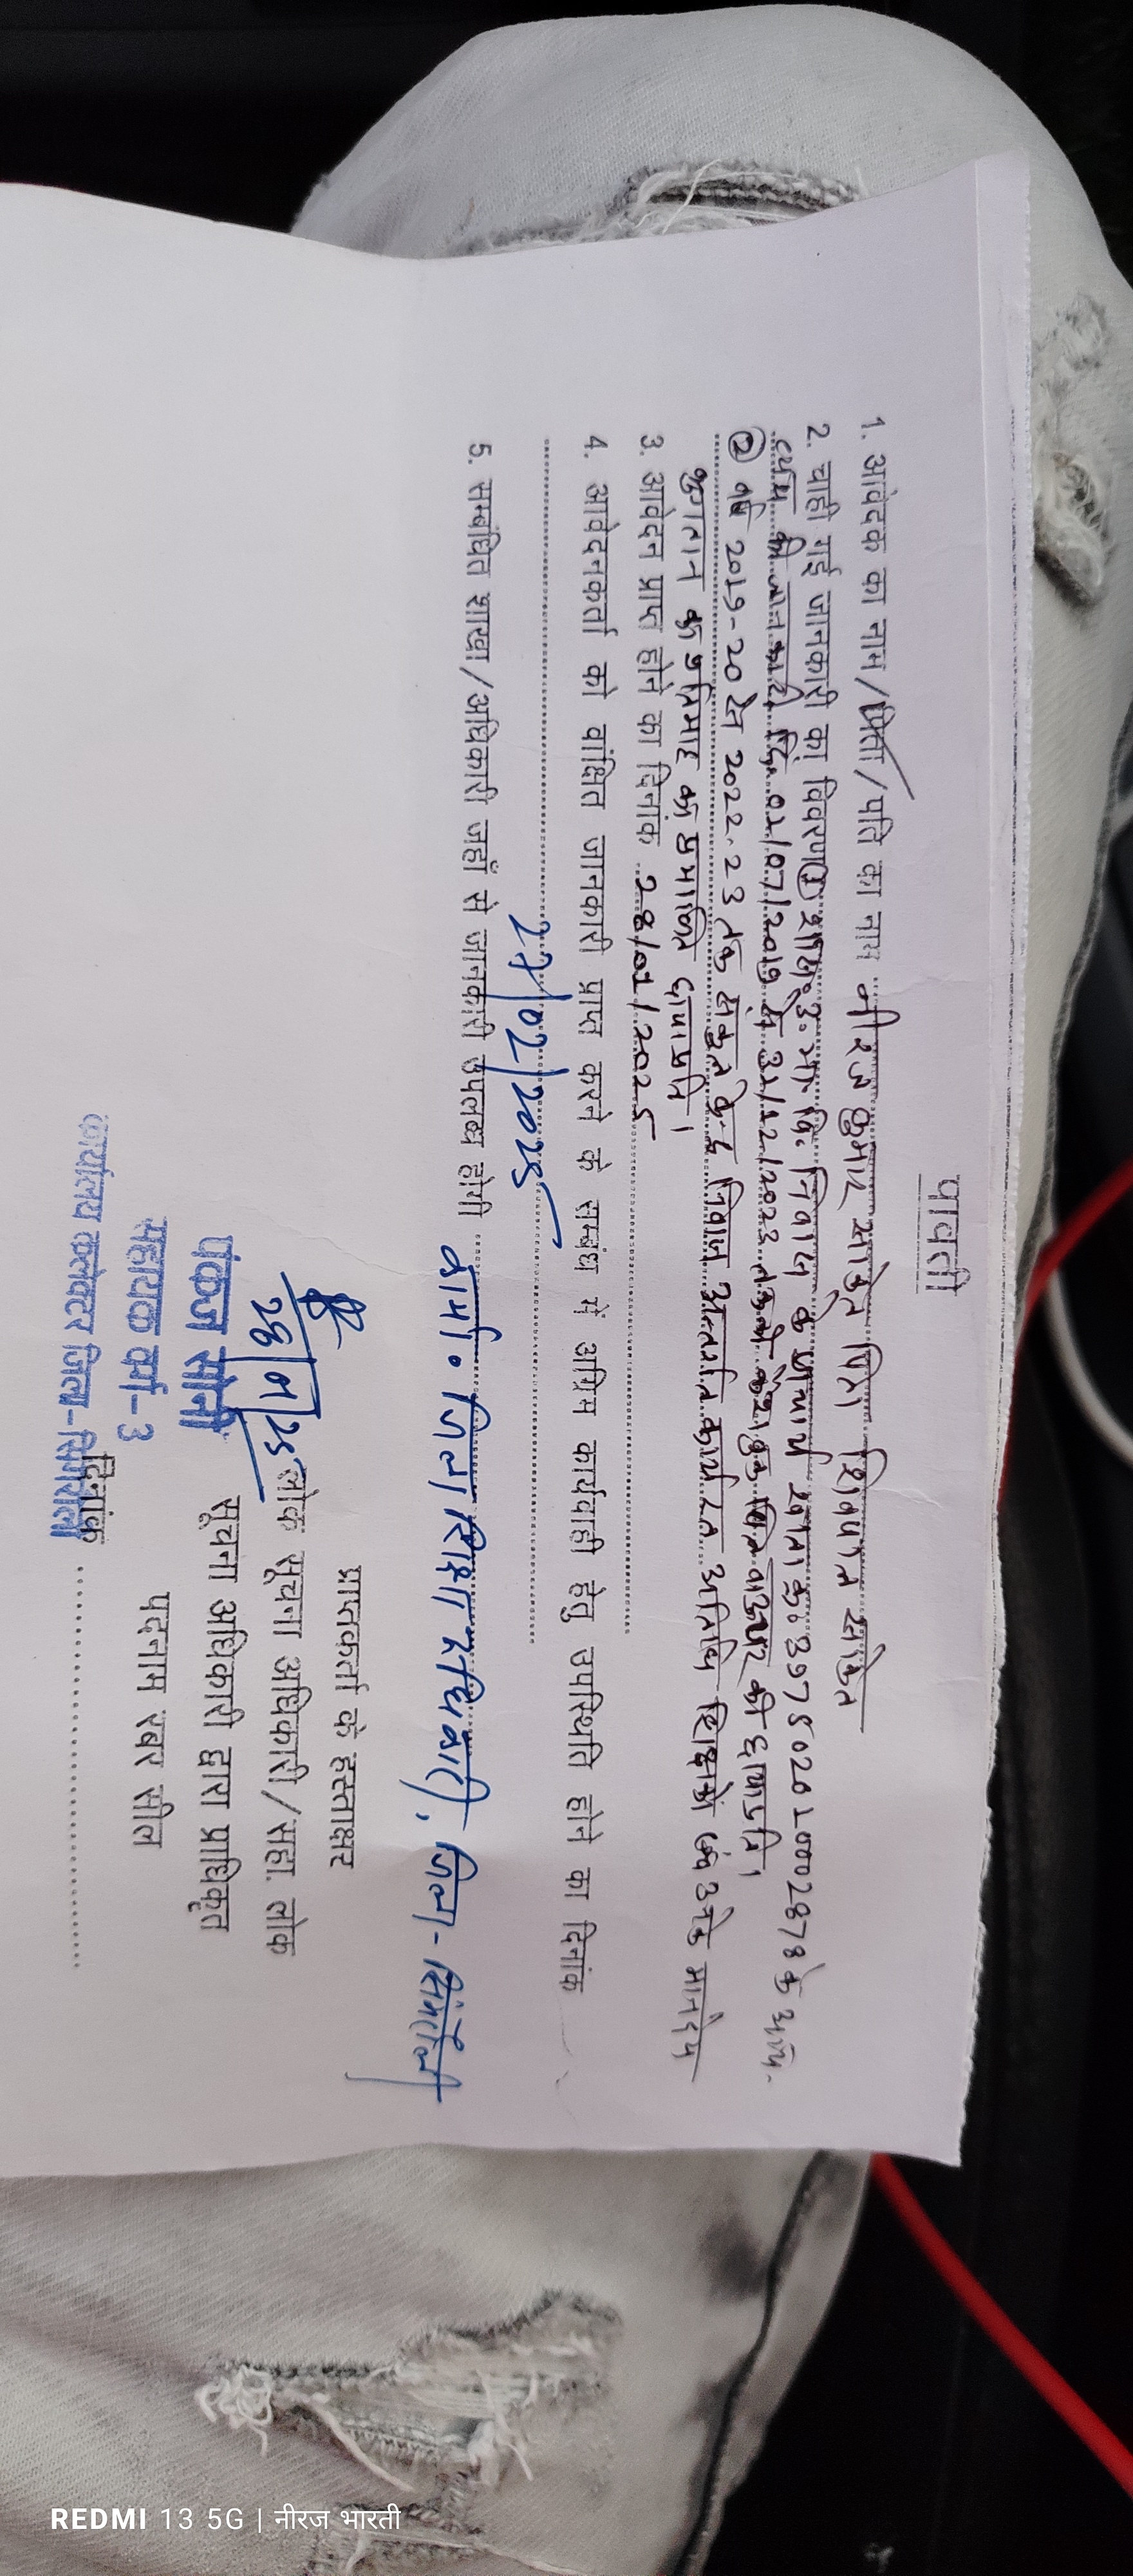 पावती
1. आवेदक का नाम/पिता/पति का नाम नीरज कुमार साकेत पिता शिवपाल साकेत
2. चाही गई जानकारी का विवरण ① शास. उ. मा. वि. निवास के प्राचार्य खाता क्र. के अन्य-
व्यय की जानकारी दि. 01/07/2019 से 31/12/2023 तक की कैशबुक बिल वाउचर की छायाप्रति।
② वर्ष 2019-20 से 2022-23 तक संकुल केन्द्र निवास अन्तर्गत कार्यरत अतिथि शिक्षकों एवं उनके मानदेय
भुगतान का प्रतिमाह का प्रमाणित छायाप्रति।
3. आवेदन प्राप्त होने का दिनांक 28/01/2025
4. आवेदनकर्ता को वांक्षित जानकारी प्राप्त करने के सम्बंध में अग्रिम कार्यवाही हेतु उपस्थिति होने का दिनांक
27/02/2025
5. सम्बंधित शाखा/अधिकारी जहाँ से जानकारी उपलब्ध होगी कार्या. जिला शिक्षा अधिकारी, जिला-सिंगरौली
प्राप्तकर्ता के हस्ताक्षर
लोक सूचना अधिकारी/सहा. लोक
सूचना अधिकारी द्वारा प्राधिकृत
पदनाम रबर सील
दिनांक
28/01/25
पंकज सोनी
सहायक वर्ग-3
कार्यालय कलेक्टर जिला-सिंगरौली
REDMI 13 5G | नीरज भारती